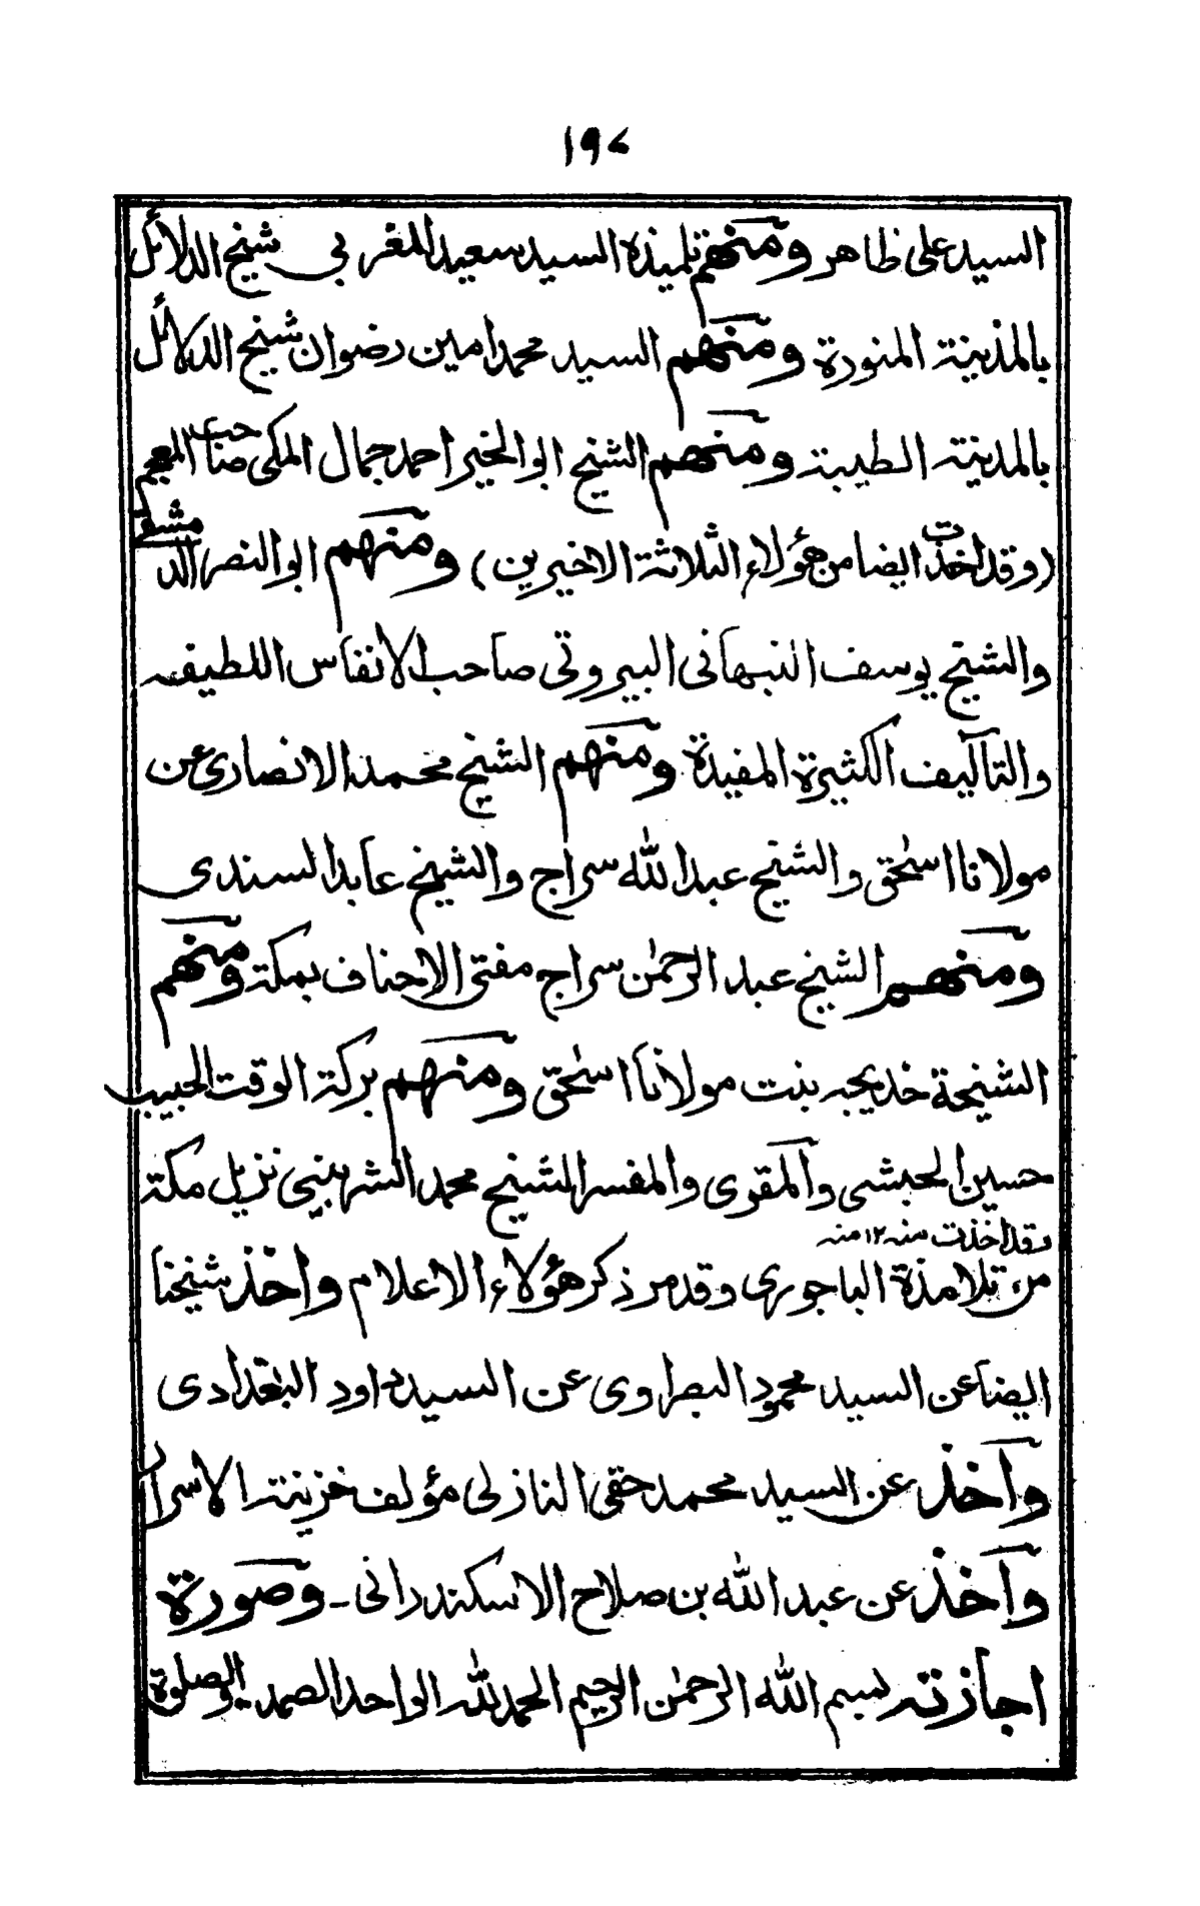 ۱۹۷
السيد علی ظاهر ومنهم تلميذه السيد سعيد المغربی شيخ الدلائل
بالمدينة المنورة ومنهم السيد محمد امين رضوان شيخ الدلائل
بالمدينة الطيبة ومنهم الشيخ ابو الخير احمد جمال المکی صاحب المعجم
(وقد اخذت ايضا من هؤلاء الثلاثة الاخيرين) ومنهم ابو النصر الدمشقی
والشيخ يوسف النبهانی البيروتی صاحب الانفاس اللطيفه
والتآليف الکثيرة المفيدة ومنهم الشيخ محمد الانصاری عن
مولانا اسحٰق والشيخ عبد الله سراج والشيخ عابد السندی
ومنهم الشيخ عبد الرحمٰن سراج مفتی الاحناف بمکة ومنهم
الشيخة خديجه بنت مولانا اسحٰق ومنهم برکة الوقت الحبيب
حسين الحبشی والمقری والمفسر الشيخ محمد الشربينی نزيل مکة
وقد اخذت منه ۱۲ منه
من تلامذة الباجوری وقد مر ذکر هؤلاء الاعلام واخذ شيخنا
ايضا عن السيد محمود البصراوی عن السيد داود البغدادی
وآخذ عن السيد محمد حقی النازلی مؤلف خزينة الاسرار
وآخذ عن عبد الله بن صلاح الاسکندرانی ـ وصورة
اجازته بسم الله الرحمٰن الرحيم الحمد لله الواحد الصمد والصلوة